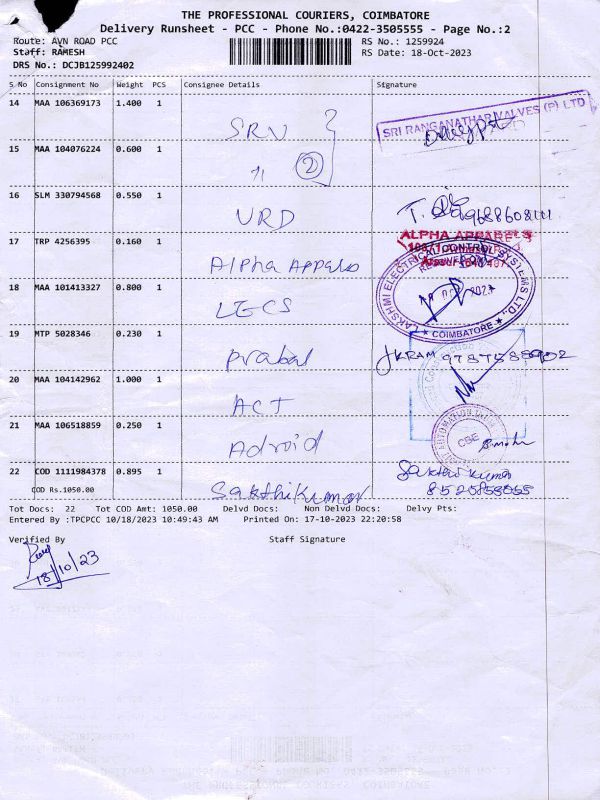 THE PROFESSIONAL COURIERS, COIMBATORE
Delivery Runsheet - PCC - Phone No.:0422-3505555 - Page No.:2
Route: AVN ROAD PCC RS No.: 1259924
Staff: RAMESH RS Date: 18-Oct-2023
DRS No.: DCJB125992402
S No Consignment No Weight PCS Consignee Details Signature
14 MAA 106369173 1.400 1
SRV
SRI RANGANATHAR VALVES (P) LTD
15 MAA 104076224 0.600 1
2
16 SLM 330794568 0.550 1
URD
17 TRP 4256395 0.160 1
Alpha Appals
ALPHA APPARELS
18 MAA 101413327 0.800 1
LECS
LAKSHMI ELECTRICAL CONTROL SYSTEMS LTD.,
COIMBATORE
19 MTP 5028346 0.230 1
Prabal
20 MAA 104142962 1.000 1
ACT
21 MAA 106518859 0.250 1
Adroid
CBE
22 COD 1111984378 0.895 1
COD Rs.1050.00
Sakthikumar
Sakthi Kumar
Tot Docs: 22 Tot COD Amt: 1050.00 Delvd Docs: Non Delvd Docs: Delvy Pts:
Entered By :TPCPCC 10/18/2023 10:49:43 AM Printed On: 17-10-2023 22:20:58
Verified By Staff Signature
18/10/23